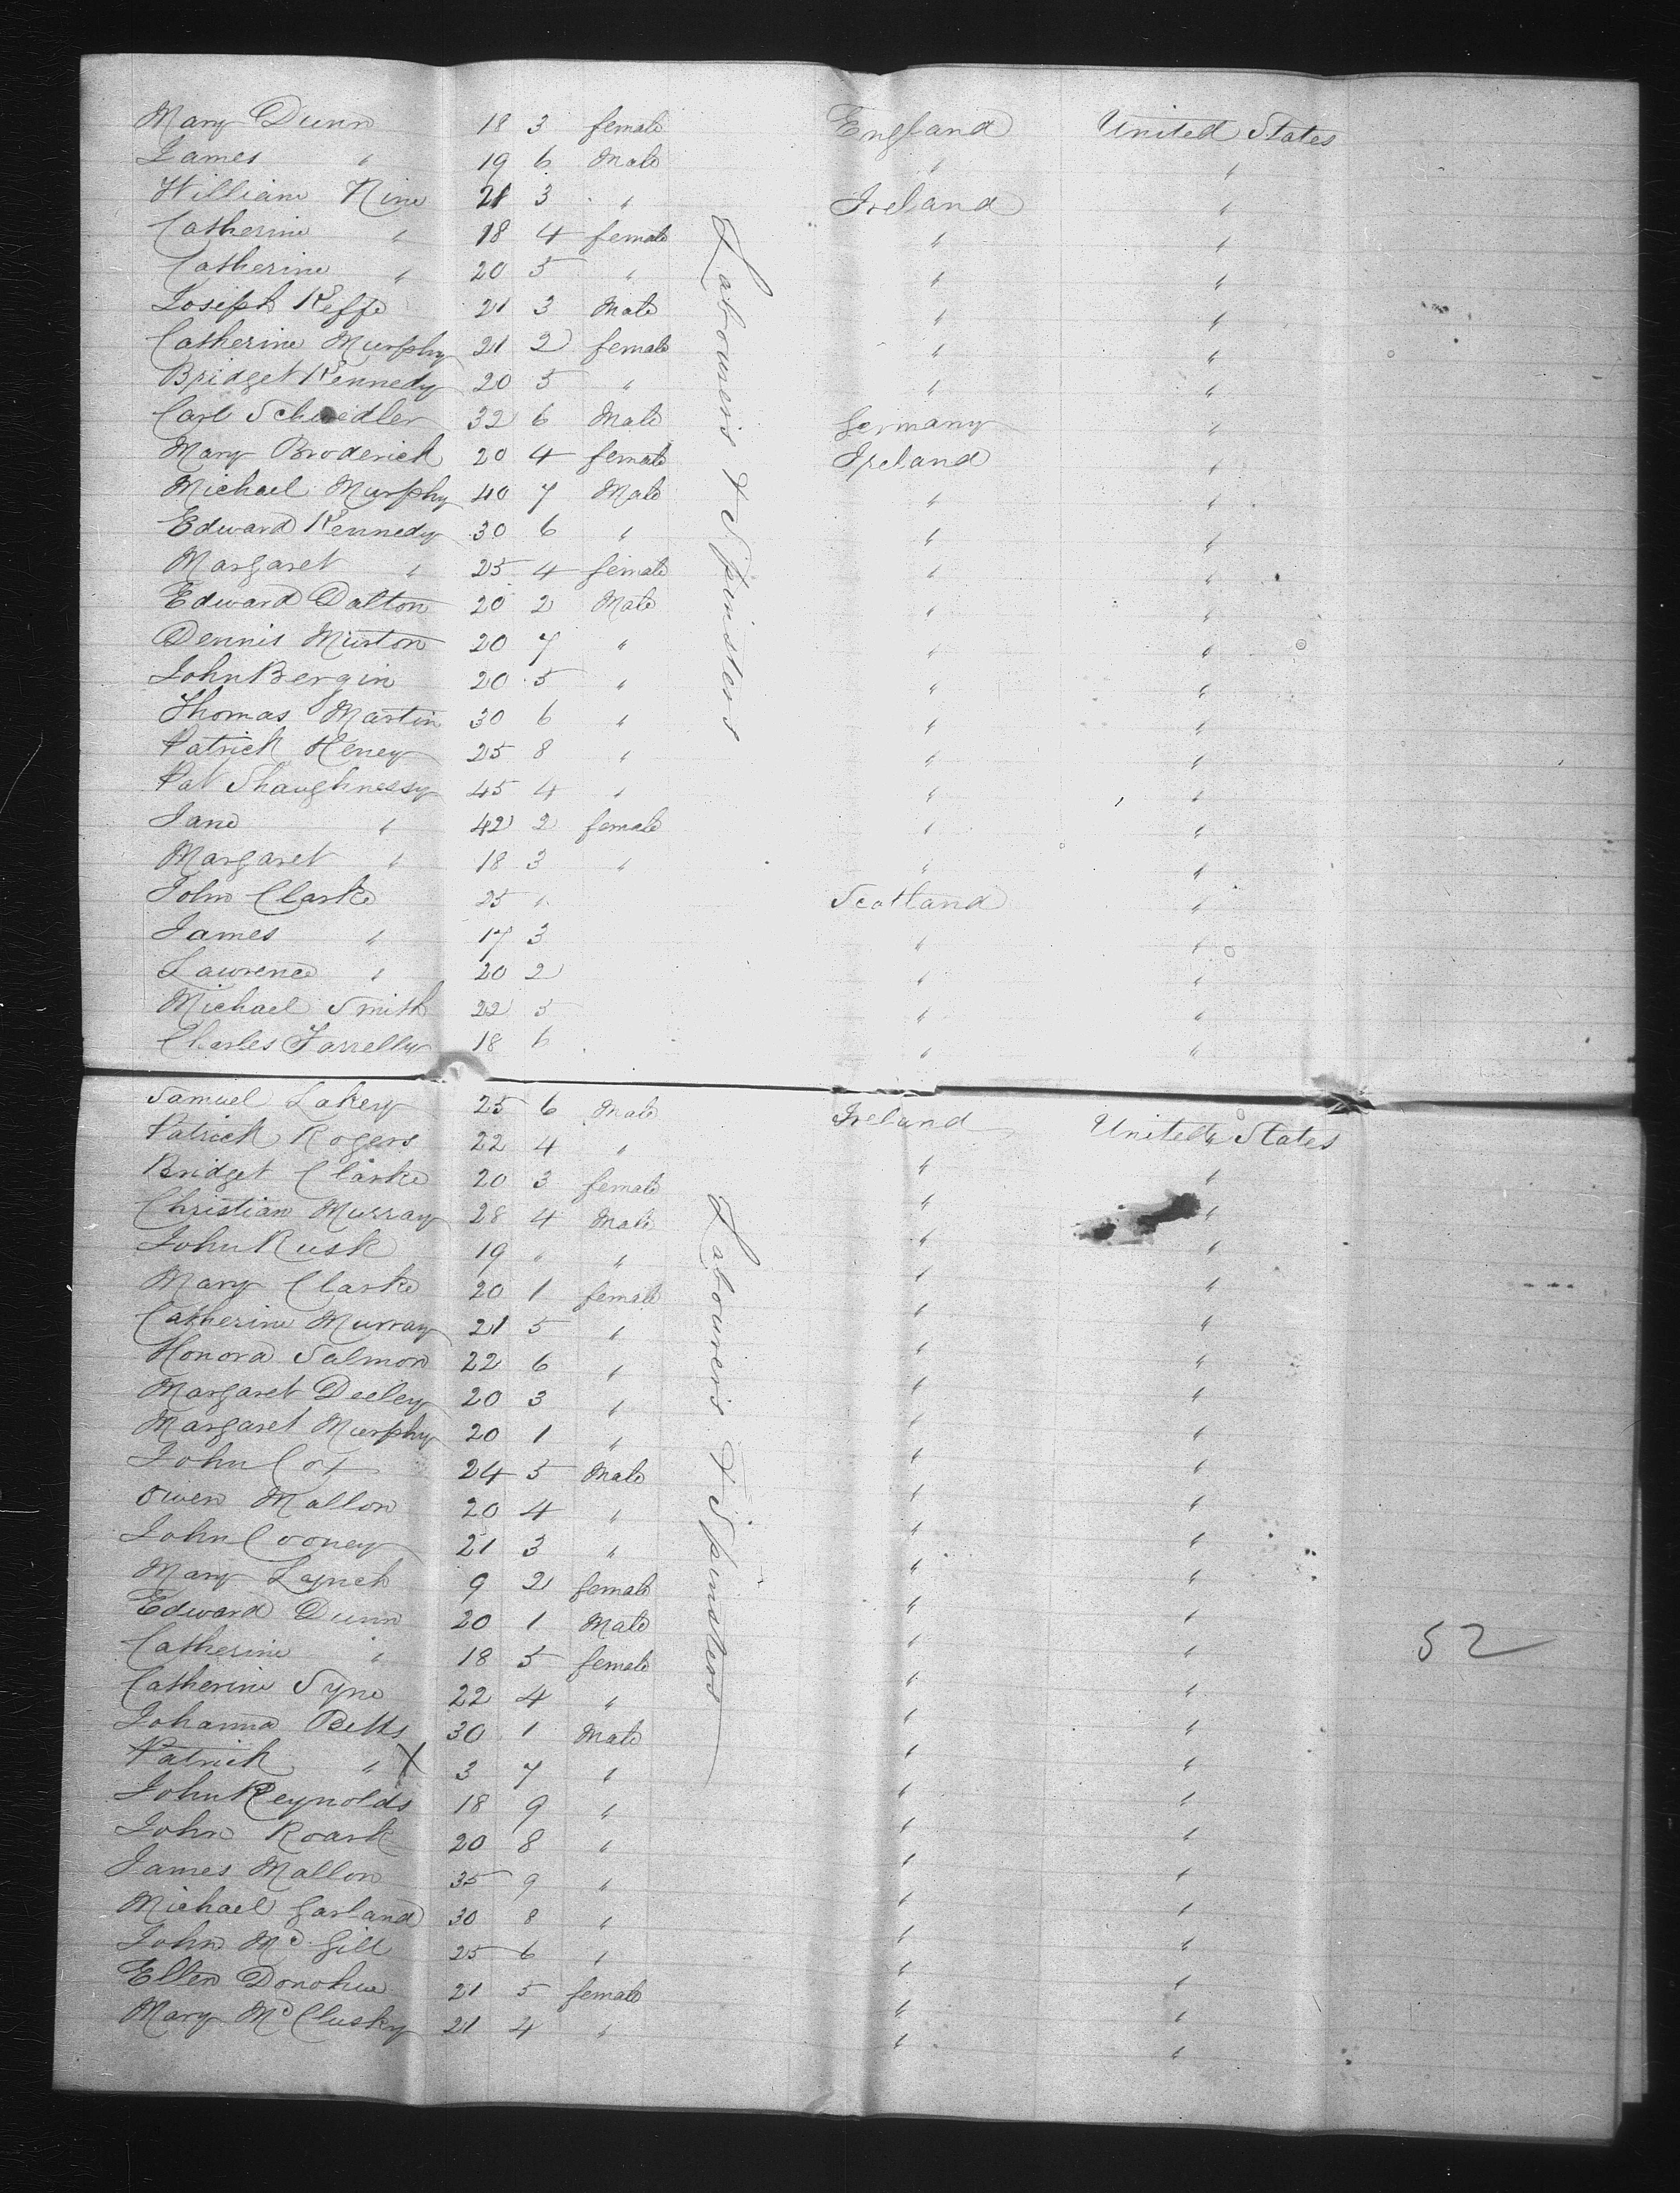 Mary Dunn 18 3 female England United States
James " 19 6 Male " "
William Nine 21 3 " Ireland "
Catherine " 18 4 female " "
Catherine " 20 5 " " "
Joseph Keffe 21 3 Male " "
Catherine Murphy 21 2 female " "
Bridget Kennedy 20 5 " " "
Carl Schwedler 32 6 Male Germany "
Mary Broderick 20 4 female Ireland "
Michael Murphy 40 7 Male " "
Edward Kennedy 30 6 " " "
Margaret " 25 4 female " "
Edward Dalton 20 2 Male " "
Dennis Murton 20 7 " " "
John Bergin 20 5 " " "
Thomas Martin 30 6 " " "
Patrick Heney 25 8 " " "
Pat Shaughnessy 45 4 " " "
Jane " 42 2 female " "
Margaret " 18 3 " " "
John Clarke 25 " Scotland "
James " 17 3 " "
Lawrence " 20 2 " "
Michael Smith 22 5 " "
Charles Farrelly 18 6 " "
Labourers & Spinsters
Samuel Lakey 25 6 Male Ireland United States
Patrick Rogers 22 4 " " "
Bridget Clarke 20 3 female " "
Christian Murray 28 4 Male " "
John Rusk 19 " " " "
Mary Clarke 20 1 female " "
Catherine Murray 21 5 " " "
Honora Salmon 22 6 " " "
Margaret Deeley 20 3 " " "
Margaret Murphy 20 1 " " "
John Cox 24 5 Male " "
Owen Mallon 20 4 " " "
John Cooney 21 3 " " "
Mary Lynch 9 2 female " "
Edward Dunn 20 1 Male " "
Catherine " 18 5 female " "
Catherine Syne 22 4 " " "
Johanna Betts 30 1 Male " "
Patrick " X 3 7 " " "
John Reynolds 18 9 " " "
John Roark 20 8 " " "
James Mallon 35 9 " " "
Michael Garland 30 8 " " "
John Mc Gill 25 6 " " "
Ellen Donohue 21 5 female " "
Mary Mc Clusky 21 4 " " "
Labourers & Spinsters
52